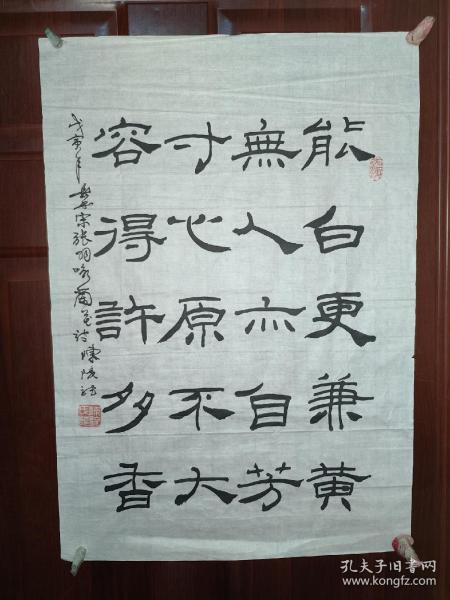 能白更兼黄
無人亦自芳
寸心原不大
容得許多香
戊寅年 录宋張羽咏蘭花诗 陳
孔夫子旧书网
www.kongfz.com